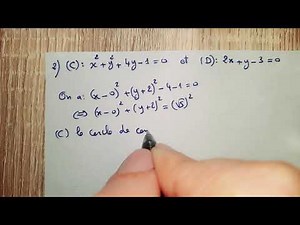 2) (C): x² + y² + 4y - 1 = 0 et (D): 2x + y - 3 = 0
On a: (x - 0)² + (y + 2)² - 4 - 1 = 0
⇔ (x - 0)² + (y + 2)² = (√5)²
(C) le cercle de cen